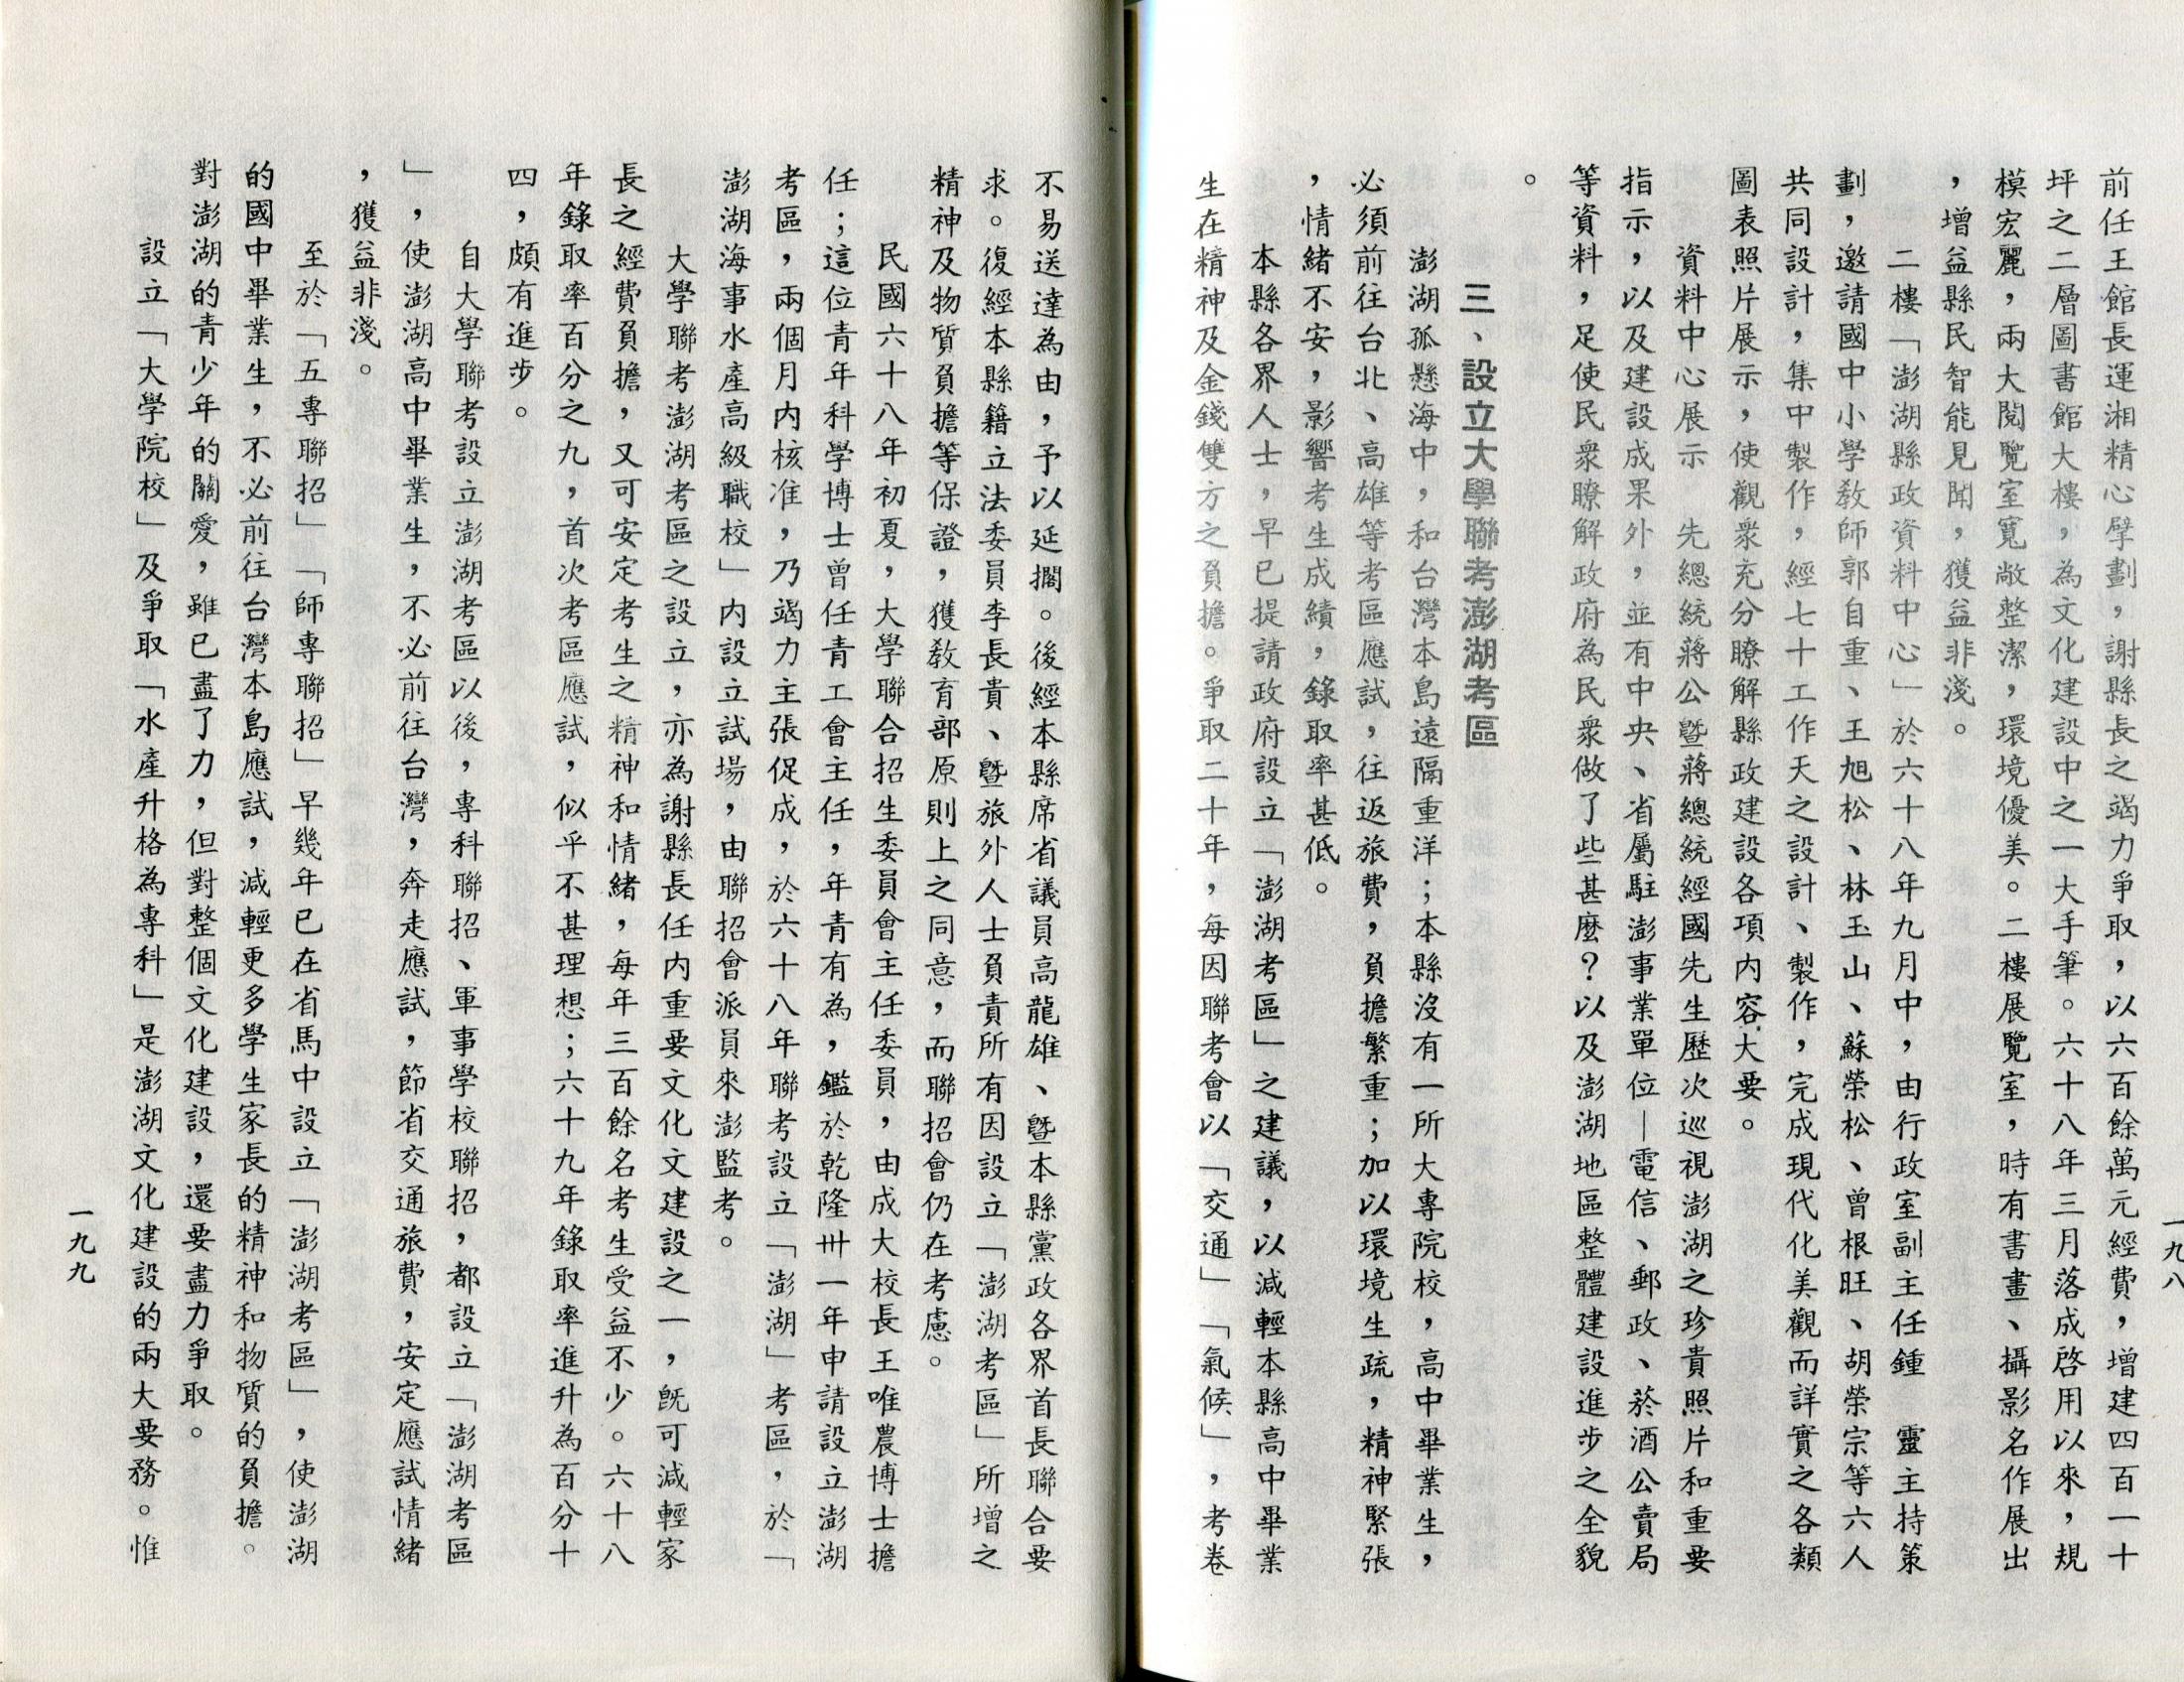 前任王館長運湘精心擘劃，謝縣長之竭力爭取，以六百餘萬元經費，增建四百一十
坪之二層圖書館大樓，為文化建設中之一大手筆。六十八年三月落成啓用以來，規
模宏麗，兩大閱覽室寬敞整潔，環境優美。二樓展覽室，時有書畫、攝影名作展出
，增益縣民智能見聞，獲益非淺。
二樓「澎湖縣政資料中心」於六十八年九月中，由行政室副主任鍾　靈主持策
劃，邀請國中小學敎師郭自重、王旭松、林玉山、蘇榮松、曾根旺、胡榮宗等六人
共同設計，集中製作，經七十工作天之設計、製作，完成現代化美觀而詳實之各類
圖表照片展示，使觀衆充分瞭解縣政建設各項內容大要。
資料中心展示　先總統蔣公曁蔣總統經國先生歷次巡視澎湖之珍貴照片和重要
指示，以及建設成果外，並有中央、省屬駐澎事業單位—電信、郵政、菸酒公賣局
等資料，足使民衆瞭解政府為民衆做了些甚麼？以及澎湖地區整體建設進步之全貌
。
三、設立大學聯考澎湖考區
澎湖孤懸海中，和台灣本島遠隔重洋；本縣沒有一所大專院校，高中畢業生，
必須前往台北、高雄等考區應試，往返旅費，負擔繁重；加以環境生疏，精神緊張
，情緒不安，影響考生成績，錄取率甚低。
本縣各界人士，早已提請政府設立「澎湖考區」之建議，以減輕本縣高中畢業
生在精神及金錢雙方之負擔。爭取二十年，每因聯考會以「交通」「氣候」，考卷
一九八
不易送達為由，予以延擱。後經本縣席省議員高龍雄、曁本縣黨政各界首長聯合要
求。復經本縣籍立法委員李長貴、曁旅外人士負責所有因設立「澎湖考區」所增之
精神及物質負擔等保證，獲敎育部原則上之同意，而聯招會仍在考慮。
民國六十八年初夏，大學聯合招生委員會主任委員，由成大校長王唯農博士擔
任；這位青年科學博士曾任青工會主任，年青有為，鑑於乾隆卅一年申請設立澎湖
考區，兩個月內核准，乃竭力主張促成，於六十八年聯考設立「澎湖」考區，於「
澎湖海事水產高級職校」內設立試場，由聯招會派員來澎監考。
大學聯考澎湖考區之設立，亦為謝縣長任內重要文化文建設之一，旣可減輕家
長之經費負擔，又可安定考生之精神和情緒，每年三百餘名考生受益不少。六十八
年錄取率百分之九，首次考區應試，似乎不甚理想；六十九年錄取率進升為百分十
四，頗有進步。
自大學聯考設立澎湖考區以後，專科聯招、軍事學校聯招，都設立「澎湖考區
」，使澎湖高中畢業生，不必前往台灣，奔走應試，節省交通旅費，安定應試情緒
，獲益非淺。
至於「五專聯招」「師專聯招」早幾年已在省馬中設立「澎湖考區」，使澎湖
的國中畢業生，不必前往台灣本島應試，減輕更多學生家長的精神和物質的負擔。
對澎湖的青少年的關愛，雖已盡了力，但對整個文化建設，還要盡力爭取。
設立「大學院校」及爭取「水產升格為專科」是澎湖文化建設的兩大要務。惟
一九九